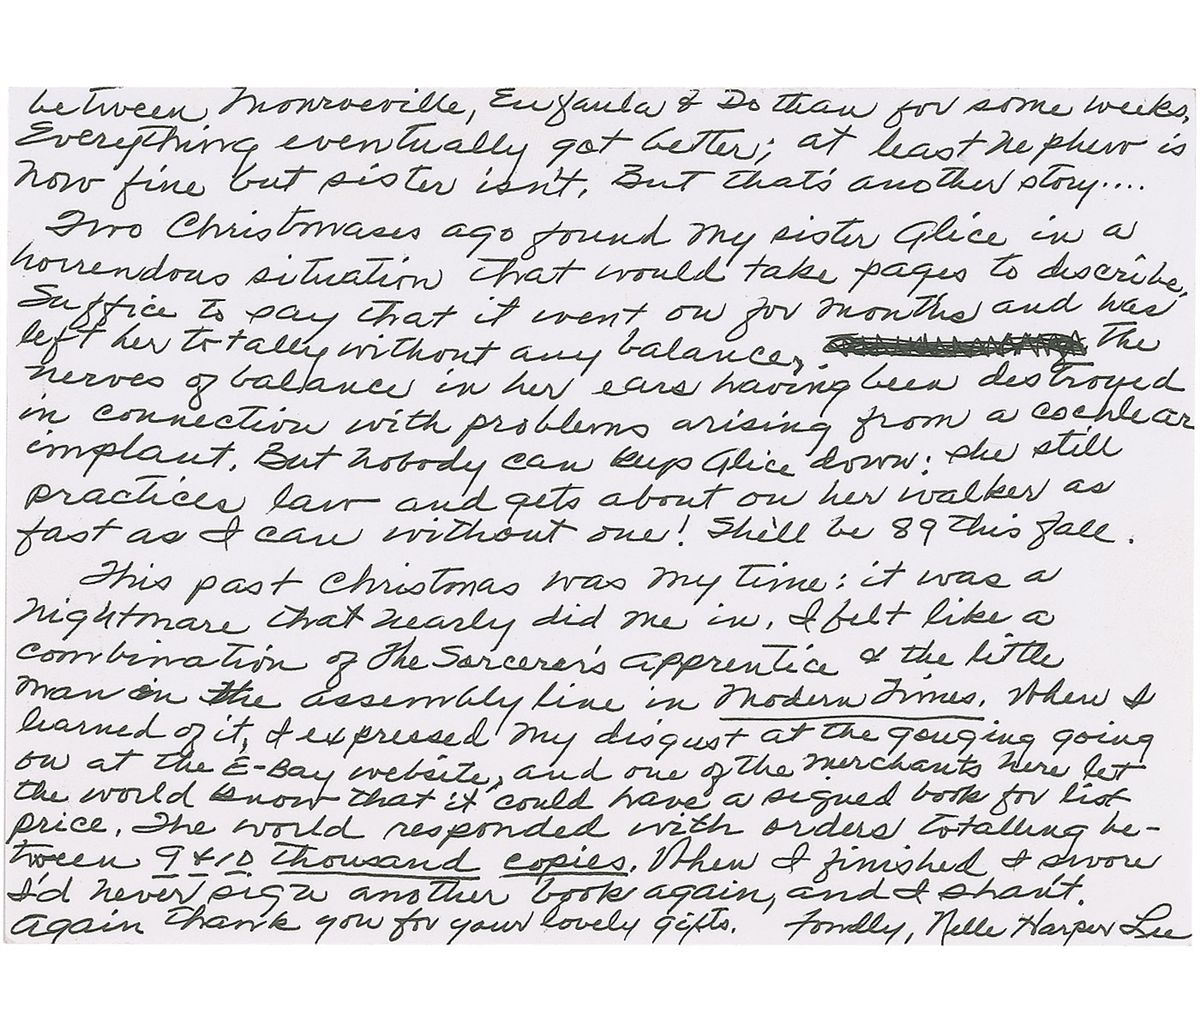 between Monroeville, Eufaula & Dothan for some weeks.
Everything eventually got better; at least nephew is
now fine but sister isn't. But that's another story....
Two Christmases ago found my sister Alice in a
horrendous situation that would take pages to describe.
Suffice to say that it went on for months and has
left her totally without any balance, The
nerves of balance in her ears having been destroyed
in connection with problems arising from a cochlear
implant. But nobody can keep Alice down: she still
practices law and gets about on her walker as
fast as I can without one! She'll be 89 this fall.
This past Christmas was my time: it was a
nightmare that nearly did me in. I felt like a
combination of The Sorcerer's Apprentice & the little
man on the assembly line in Modern Times. When I
learned of it, I expressed my disgust at the gouging going
on at the E-Bay website, and one of the merchants here let
the world know that it could have a signed book for list
price. The world responded with orders totalling be-
tween 9 & 10 thousand copies. When I finished, I swore
I'd never sign another book again, and I shan't.
Again thank you for your lovely gifts. Fondly, Nelle Harper Lee